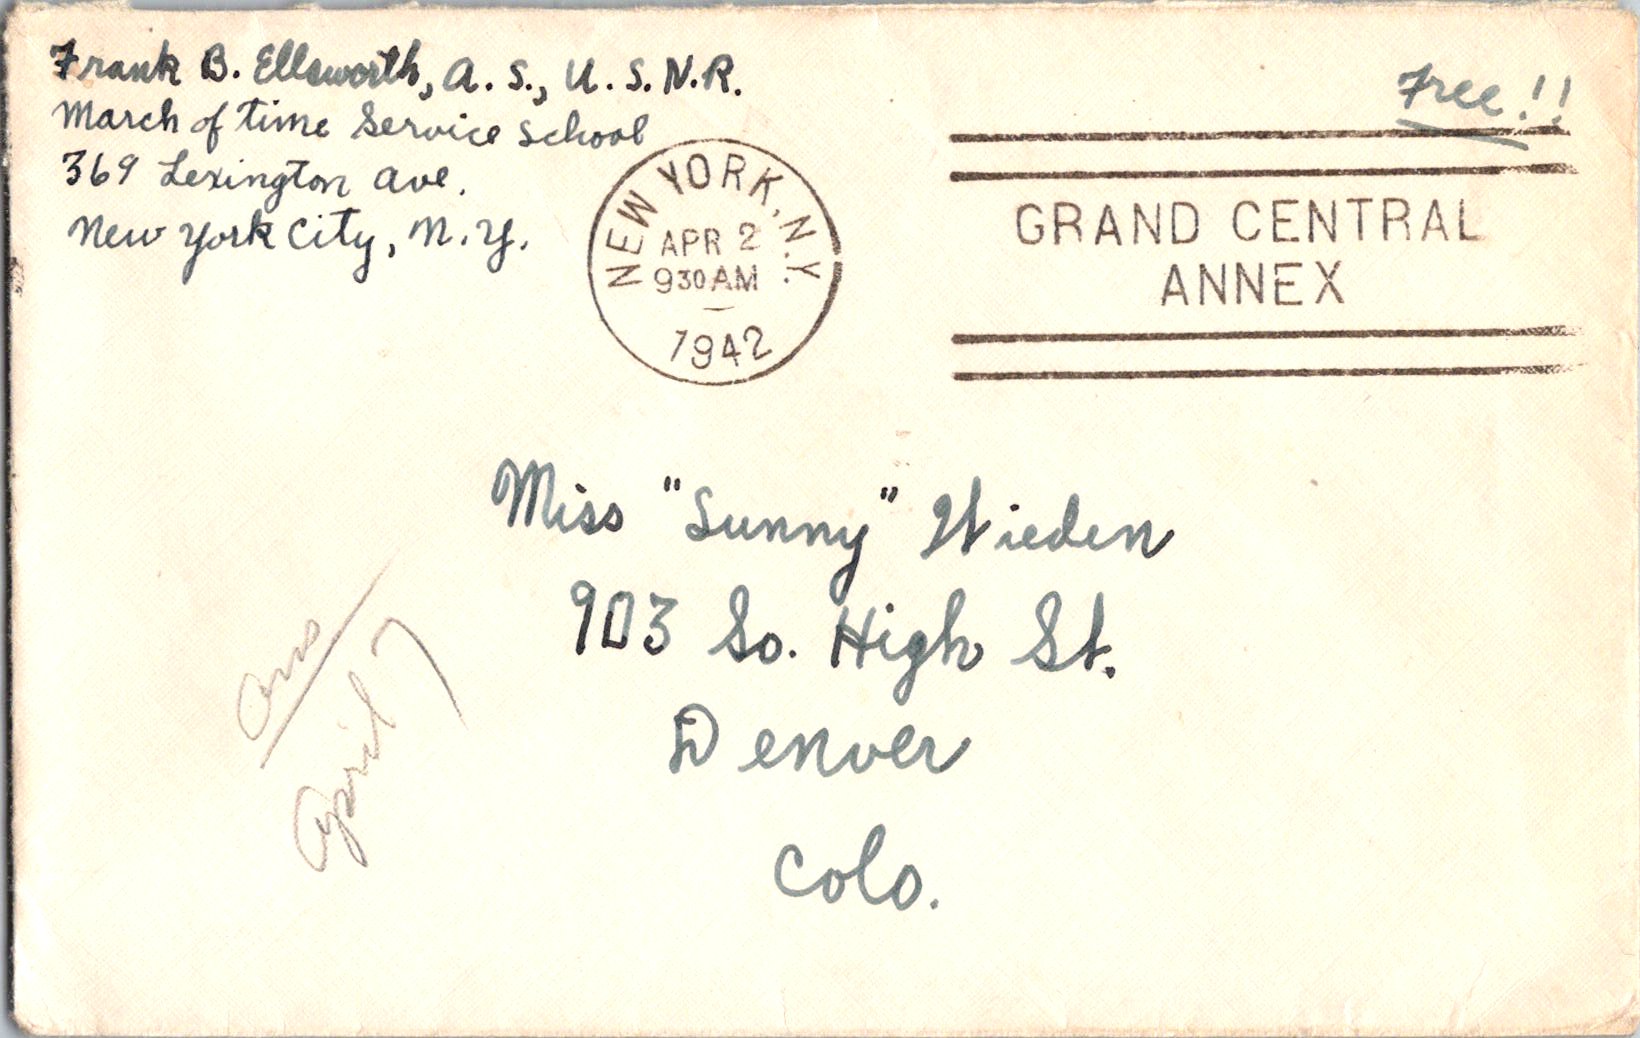 Frank B. Ellsworth, A. S., U. S. N. R.
March of time Service School
369 Lexington ave.
New York City, N. Y.
Free!!
NEW YORK, N.Y.
APR 2
930AM
1942
GRAND CENTRAL
ANNEX
Miss "Sunny" Wieden
903 So. High St.
Denver
Colo.
ans
April 7